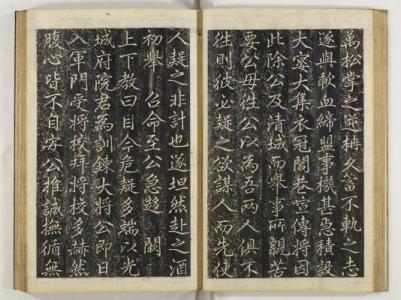 萬松掌之逆柟久蓄不軌之志
遂與歃血締盟事機甚急積設
大宴大集衣冠閭巷喧傳將因
此除公及清城而舉事所親苦
要公毋往公以為吾兩人俱不
往則彼必疑之欲謀人而先使
人疑之非計也遂坦然赴之酒
初舉 召命至公急趍 闕
上下教曰目今危疑多端以光
城府院君為訓鍊大將公即日
入軍門受將校拜將校多赫然
腹心皆不自安公推誠撫循無